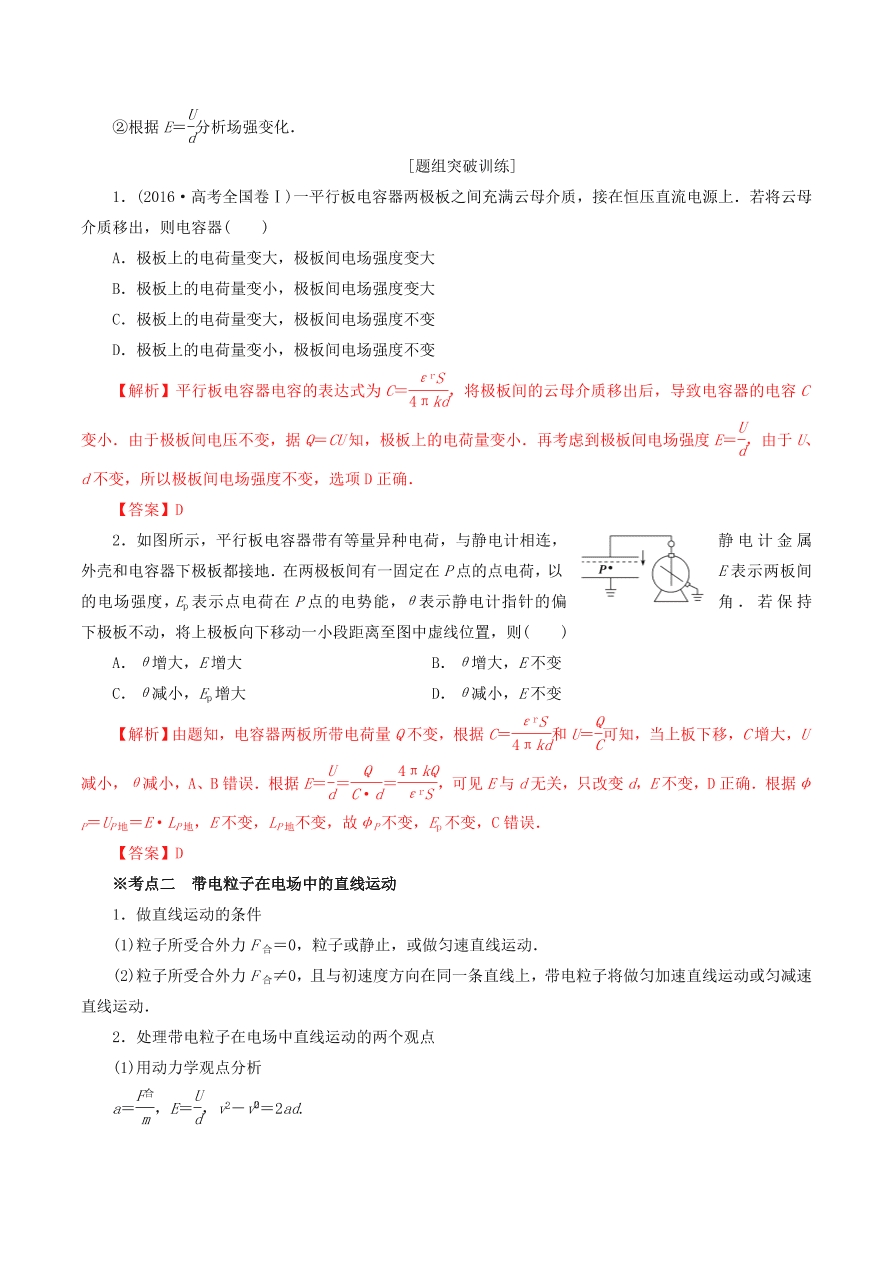 ②根据 E＝U/d分析场强变化．
[题组突破训练]
1．(2016·高考全国卷Ⅰ)一平行板电容器两极板之间充满云母介质，接在恒压直流电源上．若将云母
介质移出，则电容器(　　)
A．极板上的电荷量变大，极板间电场强度变大
B．极板上的电荷量变小，极板间电场强度变大
C．极板上的电荷量变大，极板间电场强度不变
D．极板上的电荷量变小，极板间电场强度不变
【解析】平行板电容器电容的表达式为 C＝εrS/4πkd，将极板间的云母介质移出后，导致电容器的电容 C
变小．由于极板间电压不变，据 Q＝CU 知，极板上的电荷量变小．再考虑到极板间电场强度 E＝U/d，由于 U、
d 不变，所以极板间电场强度不变，选项 D 正确．
【答案】D
2．如图所示，平行板电容器带有等量异种电荷，与静电计相连，静电计金属
外壳和电容器下极板都接地．在两极板间有一固定在 P 点的点电荷，以 E 表示两板间
的电场强度，Ep 表示点电荷在 P 点的电势能，θ表示静电计指针的偏角．若保持
下极板不动，将上极板向下移动一小段距离至图中虚线位置，则(　　)
P
A．θ增大，E 增大　　B．θ增大，E 不变
C．θ减小，Ep 增大　　D．θ减小，E 不变
【解析】由题知，电容器两板所带电荷量 Q 不变，根据 C＝εrS/4πkd和 U＝Q/C可知，当上板下移，C 增大，U
减小，θ减小，A、B 错误．根据 E＝U/d＝Q/C·d＝4πkQ/εrS，可见 E 与 d 无关，只改变 d，E 不变，D 正确．根据φ
P＝UP地＝E·LP地，E 不变，LP地不变，故φP 不变，Ep 不变，C 错误．
【答案】D
※考点二　带电粒子在电场中的直线运动
1．做直线运动的条件
(1)粒子所受合外力 F合＝0，粒子或静止，或做匀速直线运动．
(2)粒子所受合外力 F合≠0，且与初速度方向在同一条直线上，带电粒子将做匀加速直线运动或匀减速
直线运动．
2．处理带电粒子在电场中直线运动的两个观点
(1)用动力学观点分析
a＝F合/m，E＝U/d，v²－v₀²＝2ad.